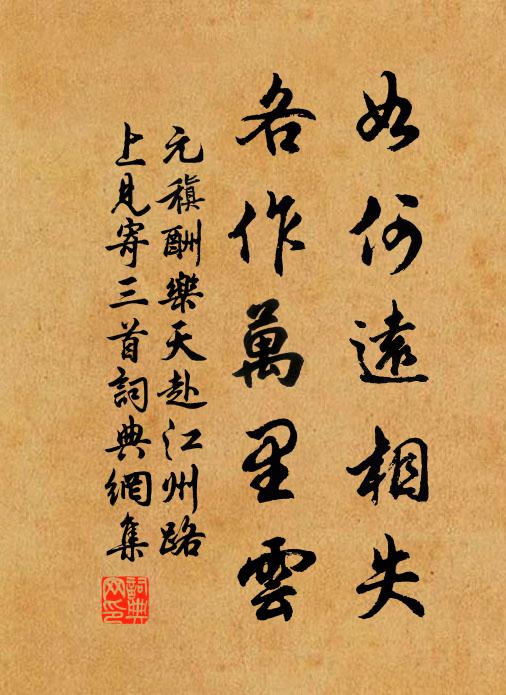 如何遠相失
各作萬里雲
元稹酬樂天赴江州路
上見寄三首詞典網集
詞典网印